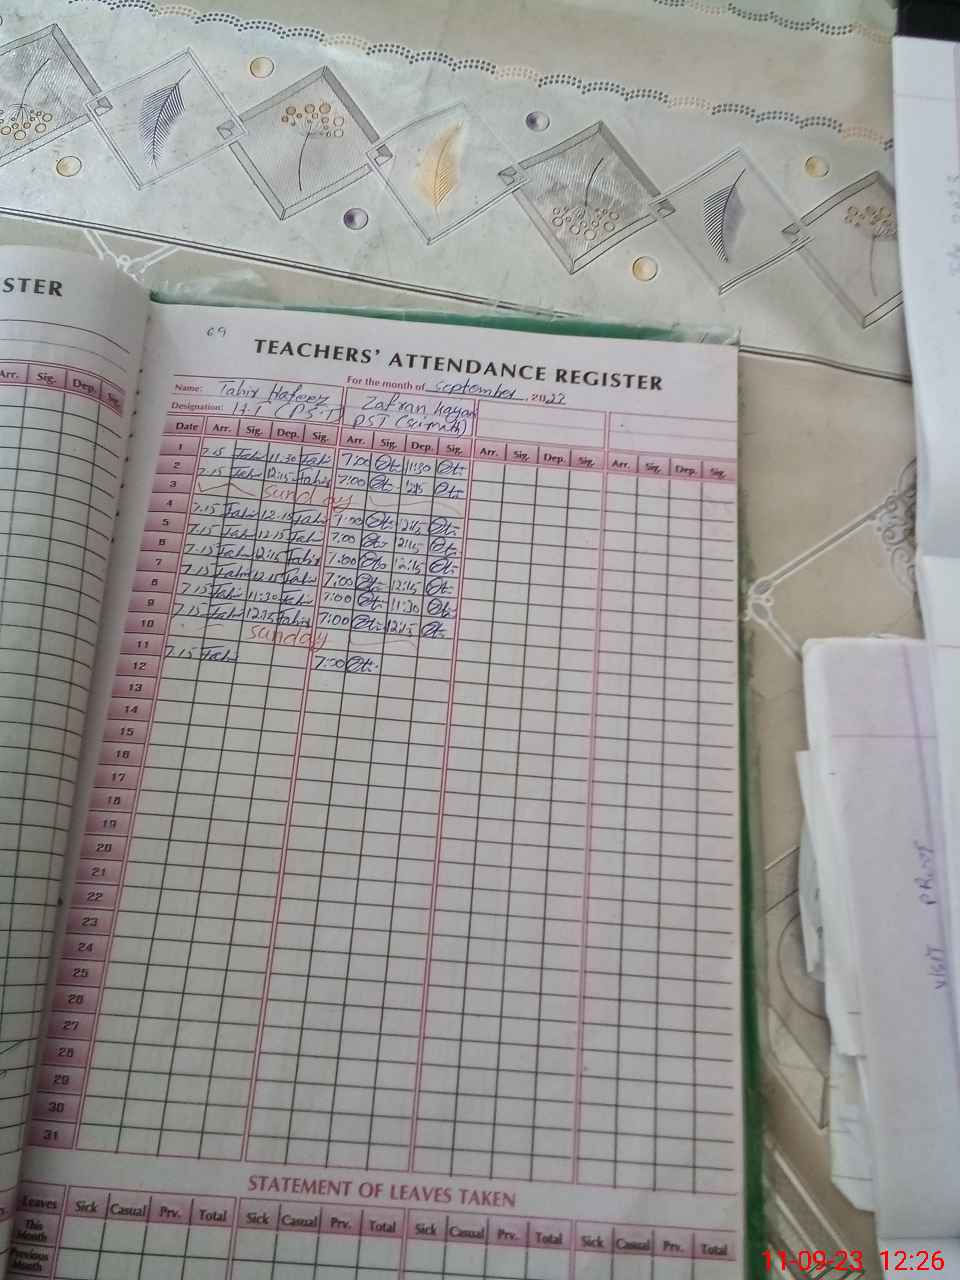 STER
Arr. Sig. Dep. Sig.
69
TEACHERS' ATTENDANCE REGISTER
Name: Tahir Hafeez For the month of September, 2022
Designation: H.T (P.S.T) Zafran Hayan
PST (Sci-math)
Date Arr. Sig. Dep. Sig. Arr. Sig. Dep. Sig. Arr. Sig. Dep. Sig. Arr. Sig. Dep. Sig.
1 7.15 Tahir 11:30 Tahir 7:00 11:30
2 7.15 Tahir 12:15 Tahir 7:00 12:15
3 Sunday
4 7.15 Tahir 12.15 Tahir 7:00 12:15
5 7.15 Tahir 12.15 Tahir 7:00 12:15
6 7.15 Tahir 12:15 Tahir 7:00 12:15
7 7.15 Tahir 12.15 Tahir 7:00 12:15
8 7.15 Tahir 11:30 Tahir 7:00 11:30
9 7.15 Tahir 12:15 Tahir 7:00 12:15
10 Sunday
11 7.15 Tahir 7:00
12
13
14
15
16
17
18
19
20
21
22
23
24
25
26
27
28
29
30
31
STATEMENT OF LEAVES TAKEN
Leaves Sick Casual Prv. Total Sick Casual Prv. Total Sick Casual Prv. Total Sick Casual Prv. Total
This Month
Previous Month
VISIT PROOF
11-09-23 12:26